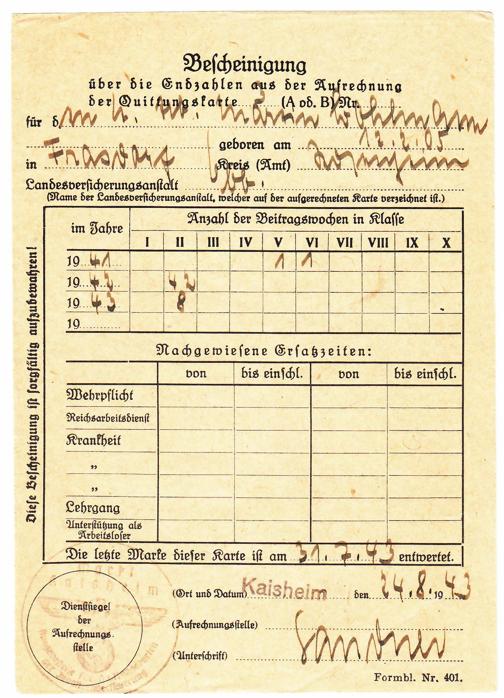 Bescheinigung
über die Endzahlen aus der Aufrechnung
der Quittungskarte (A od. B) Nr.
für d
geboren am 12.2.05
in Frasdorf Kreis (Amt) Rosenheim
Landesversicherungsanstalt Obb.
(Name der Landesversicherungsanstalt, welcher auf der aufgerechneten Karte verzeichnet ist.)
im Jahre Anzahl der Beitragswochen in Klasse
I II III IV V VI VII VIII IX X
19 41 1 1
19 42 42
19 43 8
19
Nachgewiesene Ersatzzeiten:
von bis einschl. von bis einschl.
Wehrpflicht
Reichsarbeitsdienst
Krankheit
"
"
Lehrgang
Unterstützung als
Arbeitsloser
Die letzte Marke dieser Karte ist am 31.7.43 entwertet.
Diese Bescheinigung ist sorgfältig aufzubewahren!
(Ort und Datum) Kaisheim den 24.8.1943
Dienstsiegel
der
Aufrechnungs-
stelle
(Aufrechnungsstelle)
(Unterschrift)
Formbl. Nr. 401.